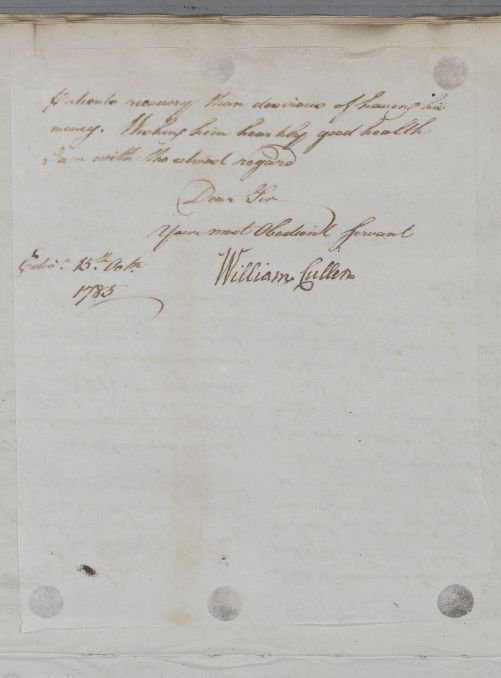 Patients recovery than desirous of having his
money. Wishing him heartily good health
I am with the utmost regard
Dear Sir
Your most Obedient Servant
Edinr. 15th Octr.
1785
William Cullen